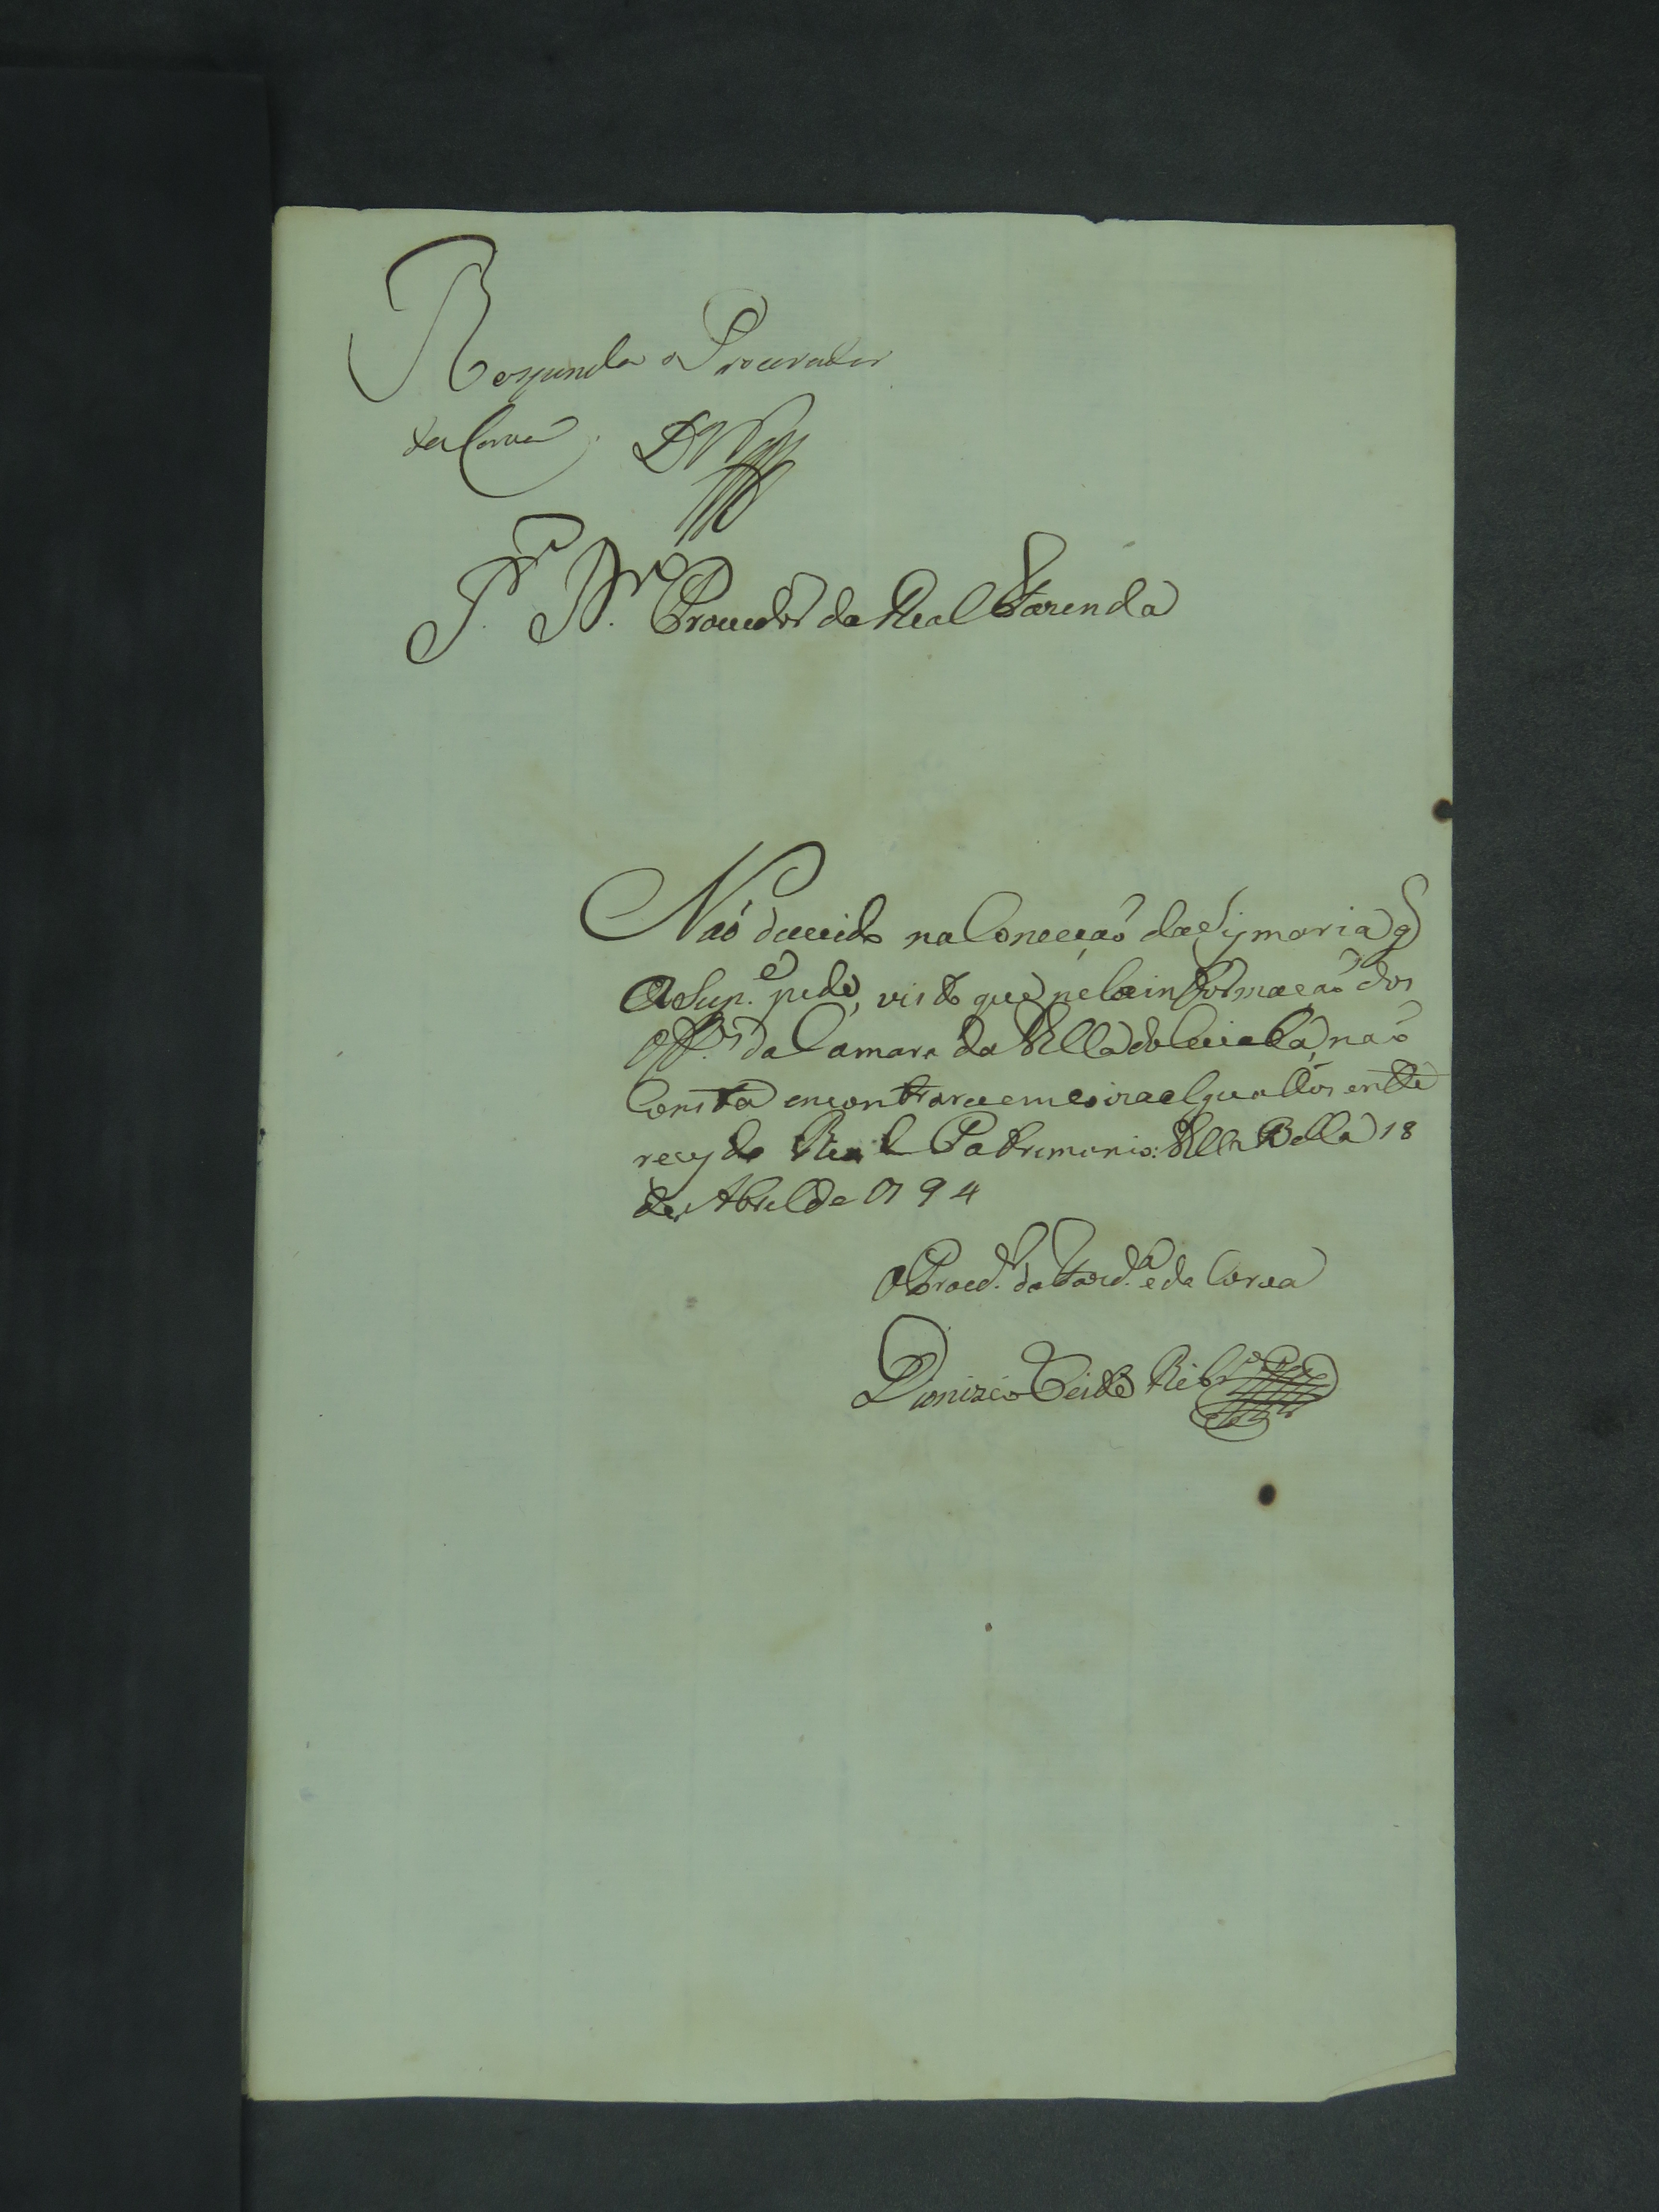 Responda o Procurador
da Coroa.
Sr. Dr. Provedor da Real Fazenda
Naó duvido na Conceçaó da Sysmaria q
A Sup.e pede, visto que pela informaçaó dos
Off.es da Camara da Villa do Cuiabá, naó
Consta encontrarce em coiza algua llos inte
reçes do Real Patrimonio: Villa Bella 18
de Abril de 794
O Procd.r da Fazd.a e da Coroa
Dionizio Leite Ribr.o